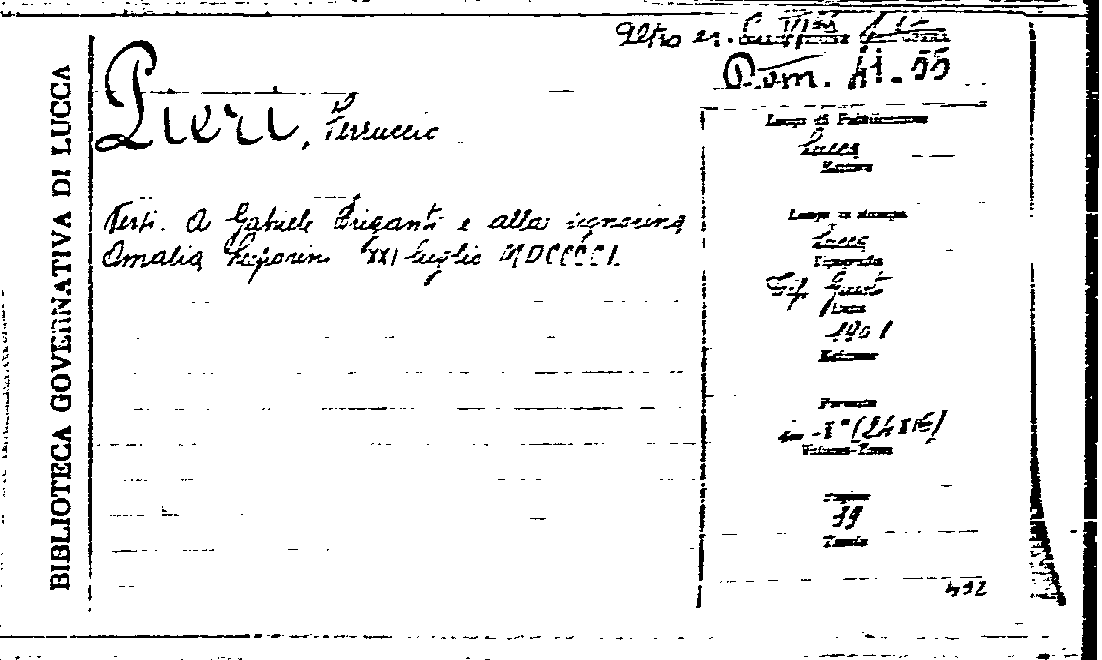 BIBLIOTECA GOVERNATIVA DI LUCCA
Altro es.
Dom. 41-55
Pieri, Ferruccio
Versi. A Gabriele Briganti e alla signorina
Amalia Luporini XXI luglio MDCCCCI.
Luogo di Pubblicazione
Lucca
Luogo di stampa
Lucca
Tipografia
Tip. Giusti
Data
1901
Edizione
Formato
in-8° (24x16)
Volume-Tomo
Pagine
19
Tavole
492